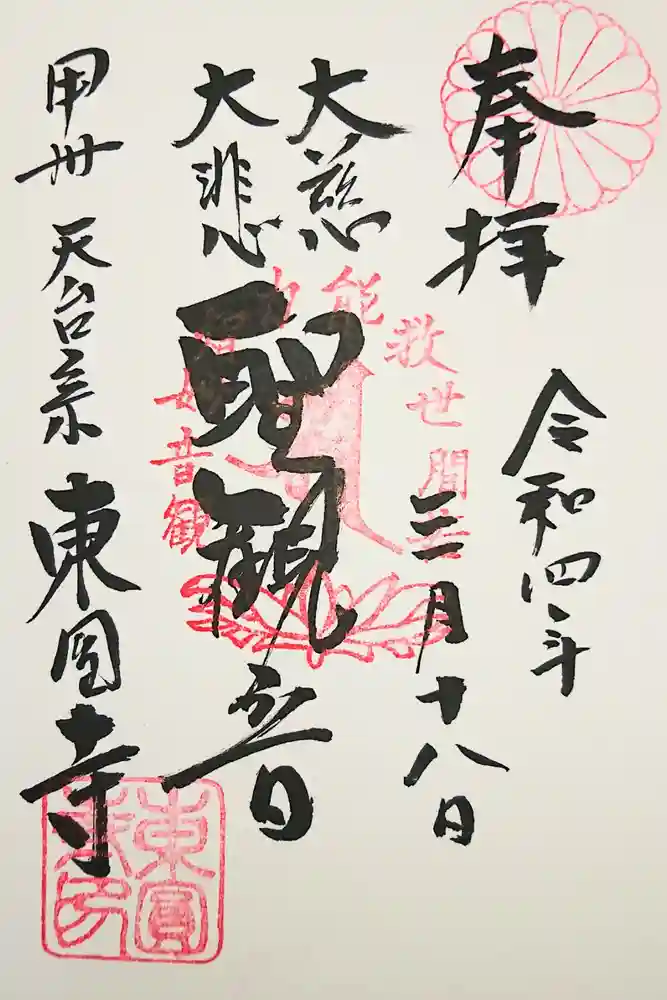 奉拝
令和四年
三月十八日
大慈
大悲
聖観音
甲州 天台宗 東圓寺
救世間苦
能
力
音観
東圓
寺印